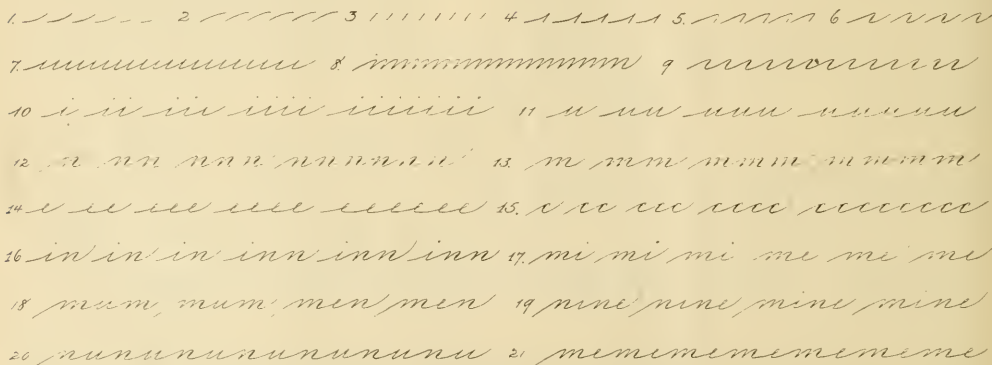 1. 2 3 4 5. 6
7. uuuuuuuuuuuu 8. mmmmmmmmm 9
10 i ii iii iiii iiiiiii 11 u uu uuu uuuuuu
12 n nn nnn nnnnnnn 13. m mm mmm mmmmm
14 e ee eee eeee eeeeeee 15. c cc ccc cccc cccccccc
16 in in in inn inn inn 17. mi mi mi me me me
18 mum, mum men men 19 nine nine mine mine
20 nunununununununu 21 mememememememememe